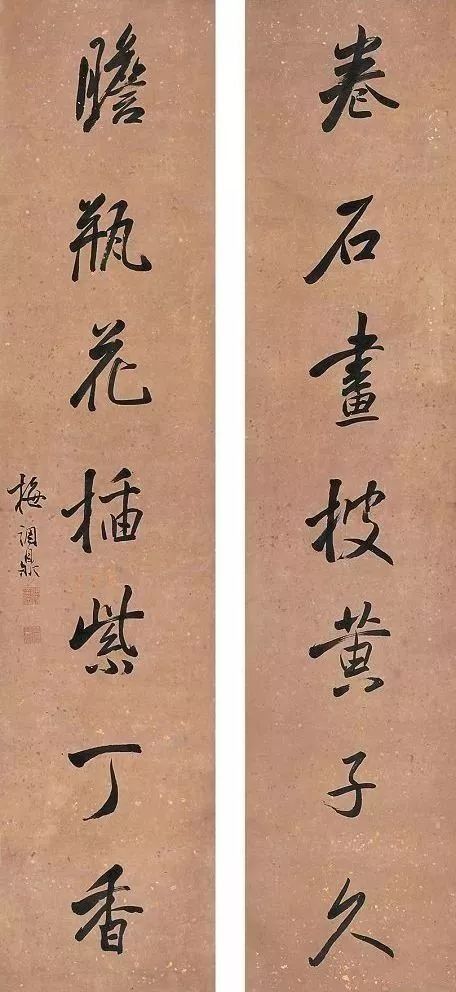 卷石畫披黄子久
瞻瓶花插紫丁香
梅調鼎